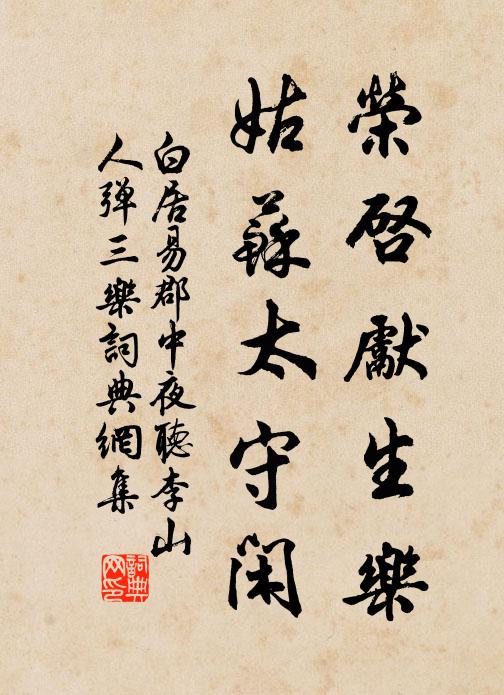 榮啓獻生樂
姑蘇太守閑
白居易郡中夜聽李山
人彈三樂詞典網集
詞典
网印